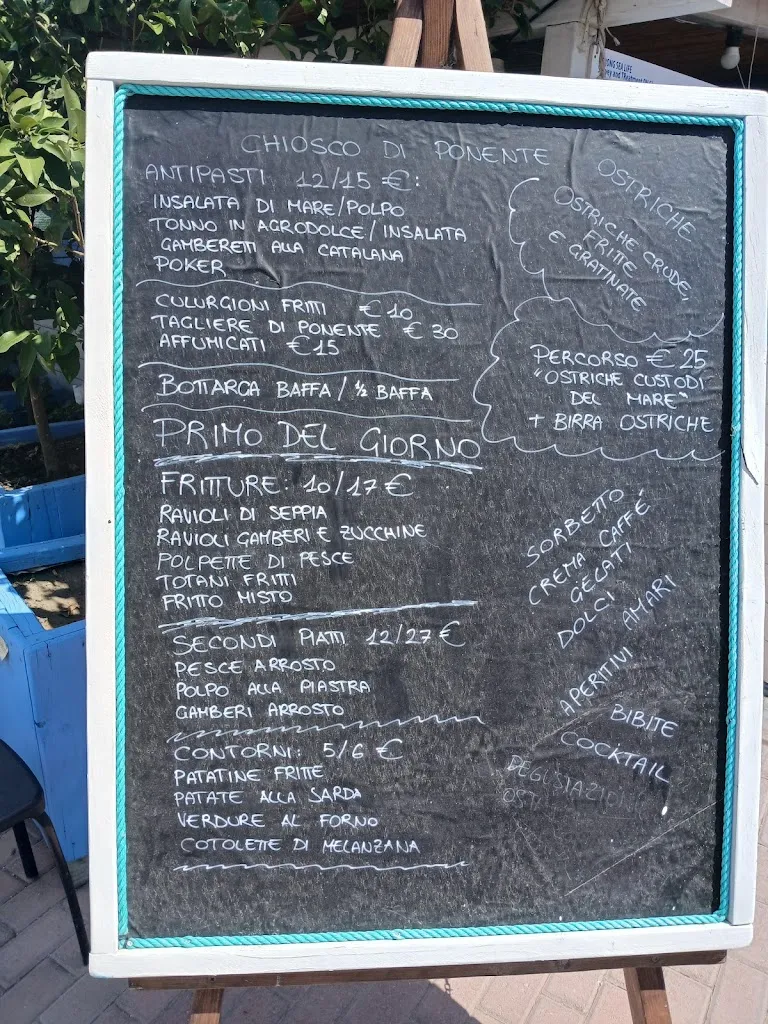 CHIOSCO DI PONENTE
ANTIPASTI 12/15 €:
INSALATA DI MARE/POLPO
TONNO IN AGRODOLCE/INSALATA
GAMBERETI ALLA CATALANA
POKER
CULURGIONI FRITTI €10
TAGLIERE DI PONENTE €30
AFFUMICATI €15
BOTTARGA BAFFA / ½ BAFFA
PRIMO DEL GIORNO
FRITTURE: 10/17 €
RAVIOLI DI SEPPIA
RAVIOLI GAMBERI E ZUCCHINE
POLPETTE DI PESCE
TOTANI FRITTI
FRITTO MISTO
SECONDI PIATTI 12/27 €
PESCE ARROSTO
POLPO ALLA PIASTRA
GAMBERI ARROSTO
CONTORNI: 5/6 €
PATATINE FRITTE
PATATE ALLA SARDA
VERDURE AL FORNO
COTOLETTE DI MELANZANA
OSTRICHE
OSTRICHE CRUDE,
FRITTE
E GRATINATE
PERCORSO €25
"OSTRICHE CUSTODI
DEL MARE"
+ BIRRA OSTRICHE
SORBETTO
CREMA CAFFÉ
GELATI
DOLCI AMARI
APERITIVI
BIBITE
COCKTAIL